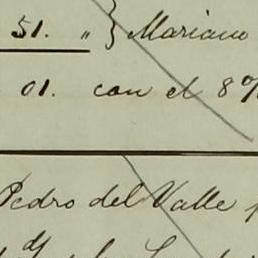 51. " } Mariano
01. con el 8%
Pedro del Valle